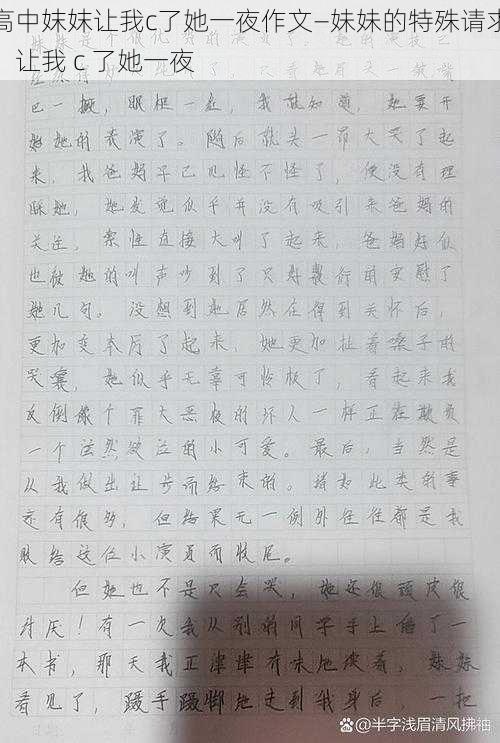 高中妹妹让我c了她一夜作文—妹妹的特殊请求
让我 c 了她一夜
巴一撅，眼框一红，我就知道，她要开
始她的表演了。随后就头一昂大哭了起
来，我爸妈早已见怪不怪了，便没有理
睬她，她发觉似乎并没有吸引来爸妈的
关注，索性直接大叫了起来，爸妈好似
也被她的叫声吵到了只好敷衍的安慰了
她几句。没想到她居然在得到关怀后，
更加变本厉了起来，她更加扯着嗓子的
哭，她似乎无辜可怜极了，看起来我
反倒像个罪大恶极的坏人一样正在欺负
一个泫然欲泣的小可爱。最后，当然是
从我做出让步而结束的。诸如此类的事
还有很多，但结果无一例外往往都是我
服给这位小演员而收尾。
但她也不是只会哭，她还很顽皮很
讨厌！有一次我从别的同学手上借了一
本书，那天我正津津有味地读着，妹妹
看见了，蹑手蹑脚地走到我身后，一把
半字浅眉清风拂袖